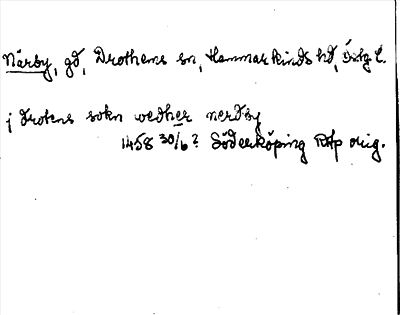 Närby, gd, Drothems sn, Hammarkinds hd, Östg l.
j drotens sokn wedher nerdby
1458 30/6? Söderköping RAp orig.